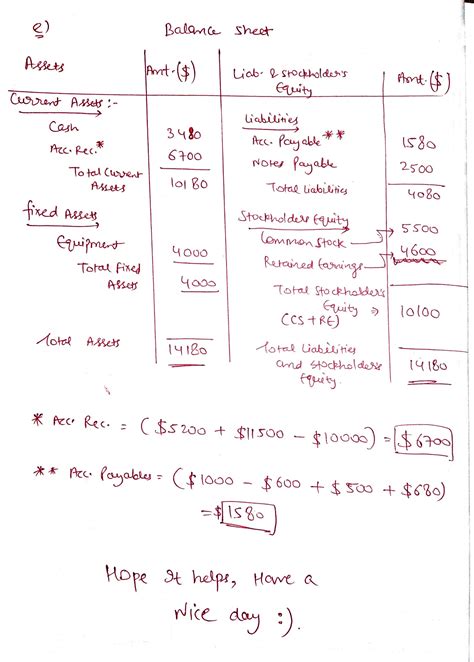 e) Balance sheet
Assets Amt.($) Liab. & stockholder's Equity Amt.($)
Current Assets :-
Cash 3480
Acc. Rec.* 6700
Total Current Assets 10180
fixed Assets
Equipment 4000
Total fixed Assets 4000
Total Assets 14180
Liabilities
Acc. Payable ** 1580
Notes Payable 2500
Total Liabilities 4080
Stockholders Equity
Common Stock 5500
Retained Earnings 4600
Total Stockholder's Equity (CS+RE) 10100
Total Liabilities and Stockholders Equity. 14180
* Acc. Rec. = ($5200 + $11500 - $10000) = $6700
** Acc. Payables = ($1000 - $600 + $500 + $680)
= $1580
Hope It helps, Have a
Nice day :).